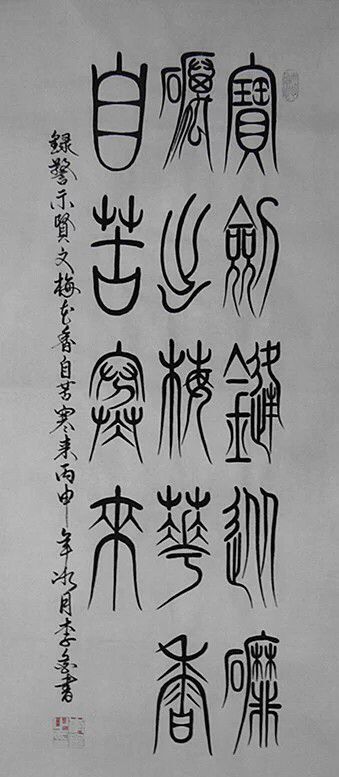 寶劍鏠從磨
礪出梅華香
自苦寒來
録警示賢文梅花香自苦寒来丙申年冰月李書